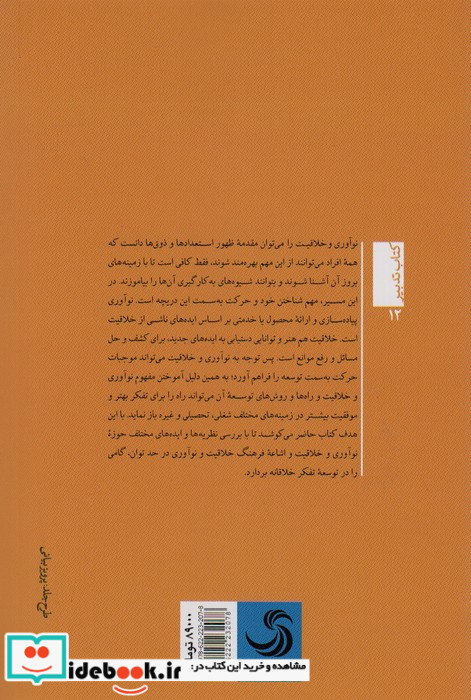 کتاب تدبیر
۱۲
نوآوری و خلاقیت را می‌توان مقدمهٔ ظهور استعدادها و ذوق‌ها دانست که
همهٔ افراد می‌توانند از این مهم بهره‌مند شوند، فقط کافی است تا با زمینه‌های
بروز آن آشنا شوند و بتوانند شیوه‌های به‌کارگیری آن‌ها را بیاموزند. در
این مسیر، مهم شناختن خود و حرکت به‌سمت این دریچه است. نوآوری
پیاده‌سازی و ارائهٔ محصول یا خدمتی بر اساس ایده‌های ناشی از خلاقیت
است. خلاقیت هم هنر و توانایی دستیابی به ایده‌های جدید، برای کشف و حل
مسائل و رفع موانع است. پس توجه به نوآوری و خلاقیت می‌تواند موجبات
حرکت به‌سمت توسعه را فراهم آورد؛ به همین دلیل آموختن مفهوم نوآوری
و خلاقیت و راه‌ها و روش‌های توسعهٔ آن می‌تواند راه را برای تفکر بهتر و
موفقیت بیشتر در زمینه‌های مختلف شغلی، تحصیلی و غیره باز نماید. با این
هدف کتاب حاضر می‌کوشد تا با بررسی نظریه‌ها و ایده‌های مختلف حوزهٔ
نوآوری و خلاقیت و اشاعهٔ فرهنگ خلاقیت و نوآوری در حد توان، گامی
را در توسعهٔ تفکر خلاقانه بردارد.
طرح جلد: پرویز بیانی
۸۹۰۰۰ توما
978-622-223-207-8
222232078
مشاهده و خرید این کتاب در:
idebook.ir